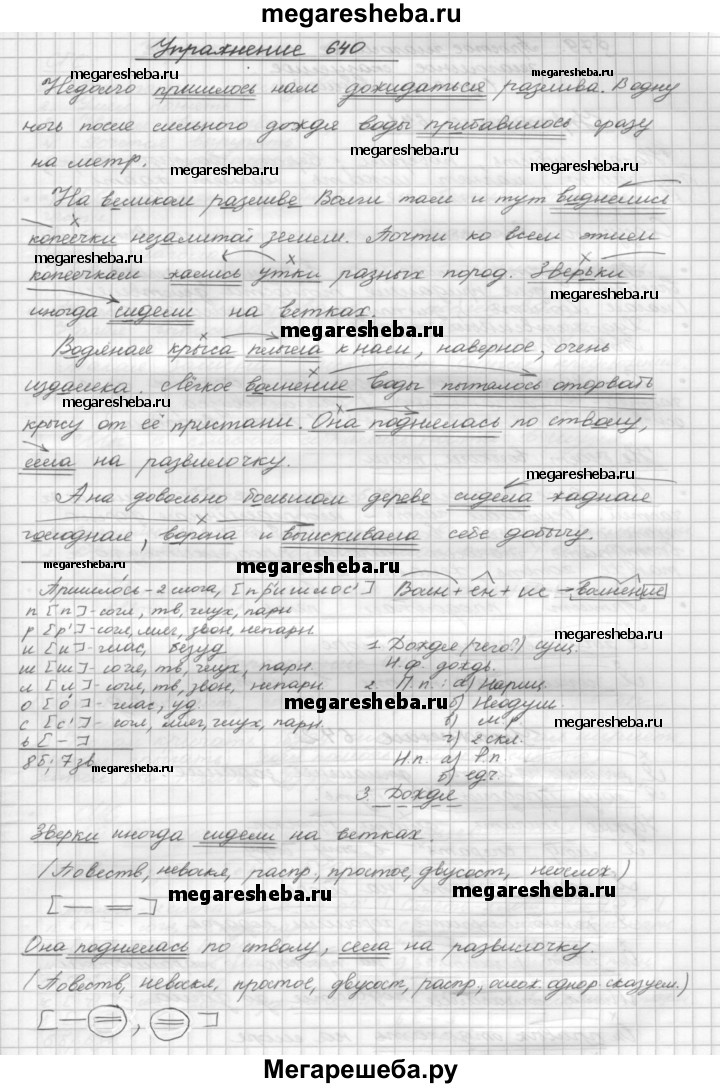 megaresheba.ru
Упражнение 640
Недолго пришлось нам дожидаться разлива. В одну
megaresheba.ru megaresheba.ru
ночь после сильного дождя воды прибавилось сразу
на метр.
megaresheba.ru megaresheba.ru
На великом разливе Волги там и тут виднелись
копеечки незалитой земли. Почти ко всем этим
megaresheba.ru
копеечкам жались утки разных пород. Зверьки
megaresheba.ru megaresheba.ru
иногда сидели на ветках.
megaresheba.ru
Водяная крыса плыла к нам, наверное, очень
издалека. Лёгкое волнение воды пыталось оторвать
megaresheba.ru
крысу от её пристани. Она поднялась по стволу,
села на развилочку.
megaresheba.ru
А на довольно большом дереве сидела жадная
голодная, ворона и выискивала себе добычу.
megaresheba.ru
Пришлось - 2 слога, [пр'ишлос'] Волн + ен + ие → волнение
п [п] - согл, тв, глух, парн
р [р'] - согл, мяг, звон, непарн.
megaresheba.ru
и [и] - глас, безуд 1. Дождя (чего?) сущ.
ш [ш] - согл, тв, глух, парн. Н.ф. дождь.
л [л] - согл, тв, звон, непарн 2. П.п.: а) Нариц.
megaresheba.ru
о [о́] - глас, уд. б) Неодуш.
с [с'] - согл, мяг, глух, парн. в) м.р
ь [-] г) 2 скл.
8б; 7зв. Н.п. а) Р.п.
megaresheba.ru megaresheba.ru
б) ед.ч.
3. Дождя
Зверки иногда сидели на ветках.
megaresheba.ru
(Повеств, невоскл, распр, простое, двусост, неослож.)
megaresheba.ru megaresheba.ru
[— =]
Она поднялась по стволу, села на развилочку.
megaresheba.ru megaresheba.ru
(Повеств, невоскл, простое, двусост, распр, ослож. однор. сказуем.)
megaresheba.ru megaresheba.ru
[— =, =]
Мегарешеба.ру